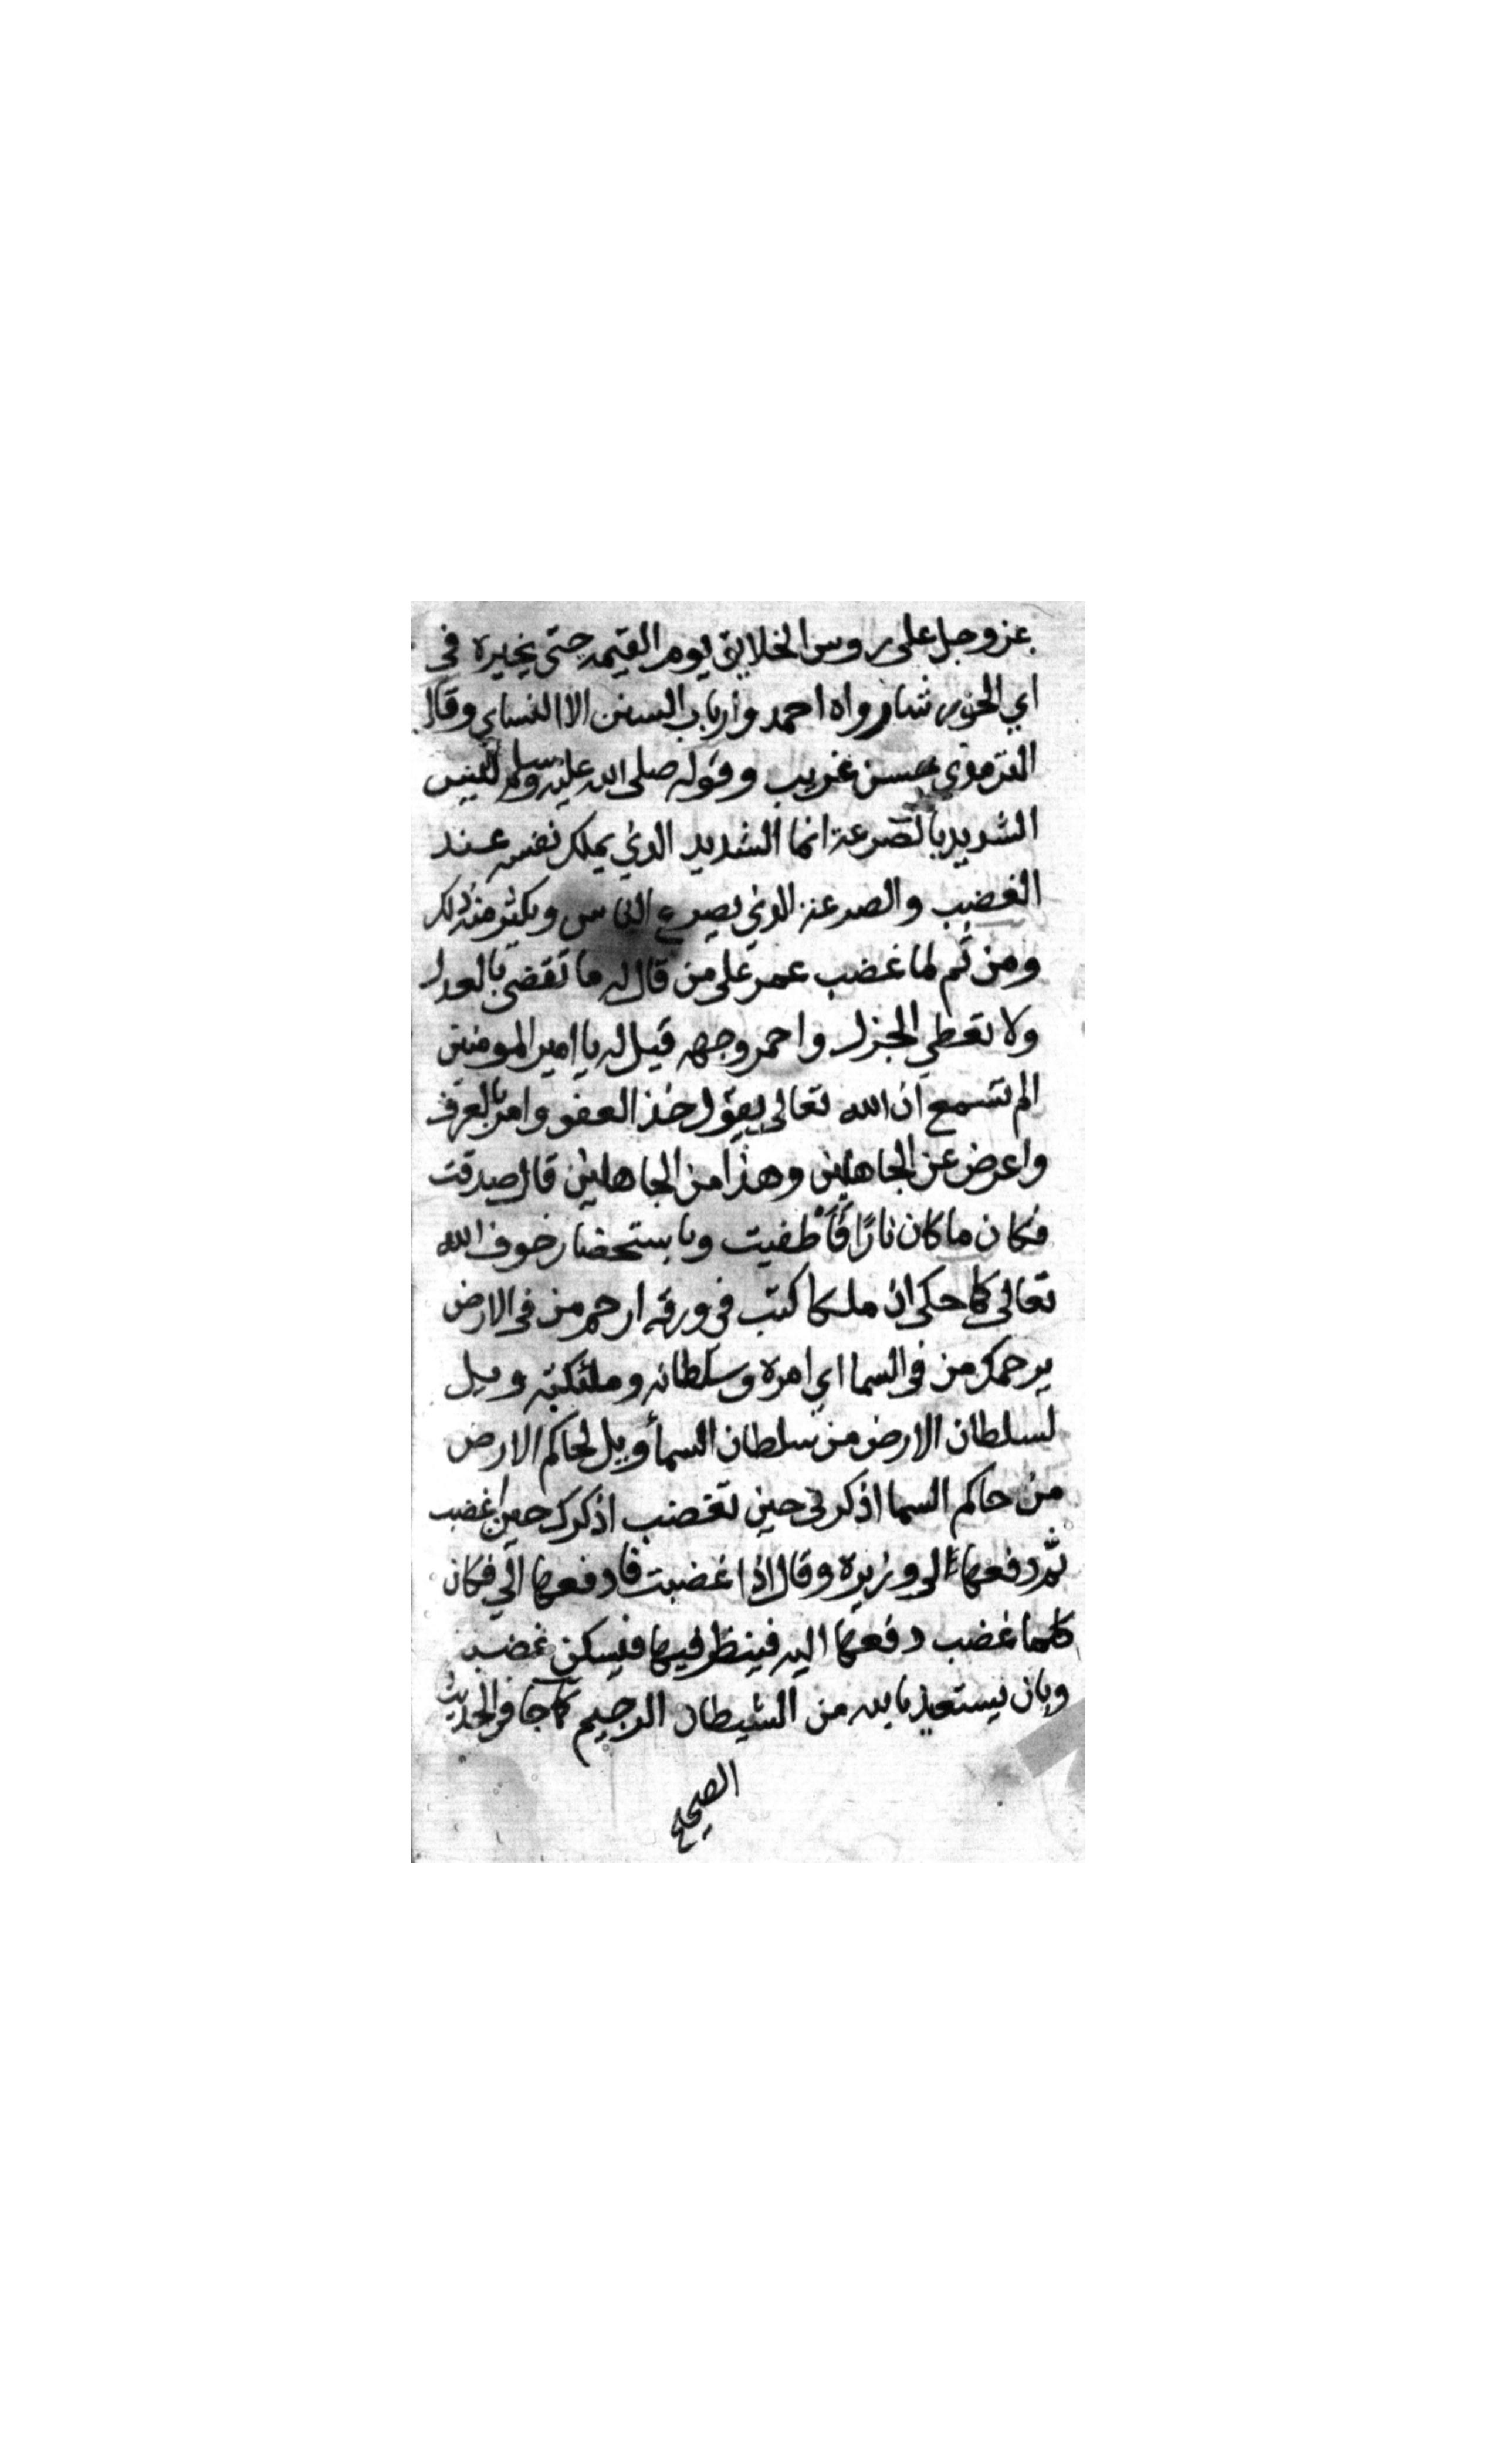 عزوجل على روس الخلايق يوم القيمه حتى يخيره في
اي الحور شا ورواه احمد وارباب السنن الا النساي وقال
الترمذي حسن غريب وقوله صلى الله عليه وسلم ليس
الشديد بالصرعة انما الشديد الذي يملك نفسه عند
الغضب والصرعة الذي يصرع الناس ويكثر منه ذلك
ومن ثم لما غضب عمر على من قال له ما تقضي بالعدل
ولا تعطي الجزل واحمر وجهه قيل له يا امير المومنين
الم تسمع ان الله تعالى يقول خذ العفو وامر بالعرف
واعرض عن الجاهلين وهذا من الجاهلين قال صدقت
فكان ما كان نارًا فَأَطفيت وباستحضار خوف الله
تعالى كما حكى ان ملكا كتب في ورقه ارحم من في الارض
يرحمك من في السما اي امره وسلطانه وملئكته ويل
لسلطان الارض من سلطان السمأ ويل لحاكم الارض
من حاكم السما اذكرني حين تغضب اذكرك حين اغضب
ثم دفعها الى وزيره وقال اذا غضبت فادفعها الي فكان
كلما غضب دفعها اليه فينظر فيها فيسكن غضبه
وبان يستعيذ بالله من الشيطان الرجيم كما جا في الحديث
الصحيح